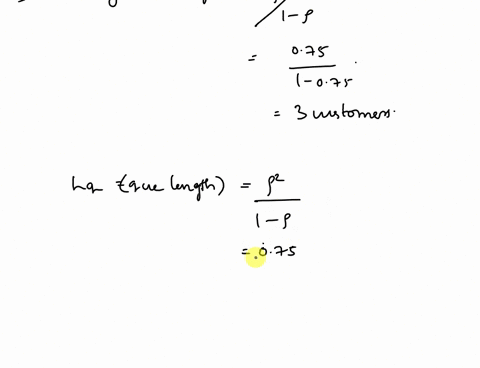 1-ρ
= 0.75
1-0.75
= 3 customers.
Lq (que length) = ρ²
1-ρ
= 0.75